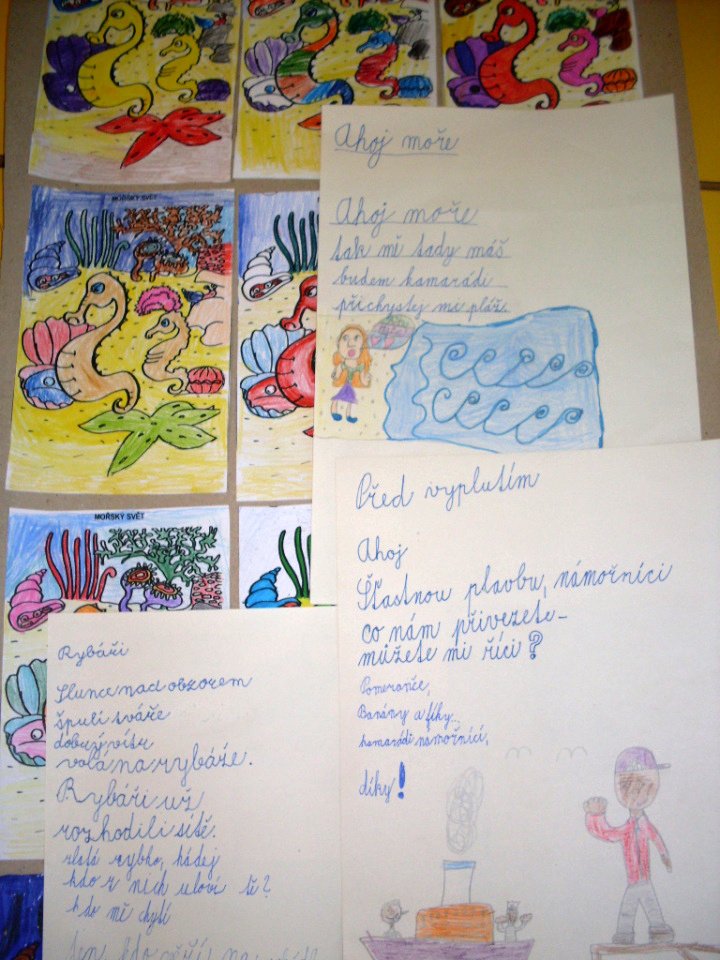 MOŘSKÝ SVĚT
MOŘSKÝ SVĚT
Ahoj moře
Ahoj moře
tak mě tady máš
budem kamarádi
přichystej mi pláž.
Před vyplutím
Ahoj
Šťastnou plavbu, námořníci
co nám přivezete–
můžete mi říci?
Pomeranče,
Banány a fíky.
kamarádi námořníci,
díky!
Rybáři
Slunce nad obzorem
špulí tváře
dobrý vítr
volá na rybáře.
Rybáři už
rozhodili sítě.
zlatá rybko, hádej
kdo z nich uloví tě?
kdo mě chytí
Jen kdo